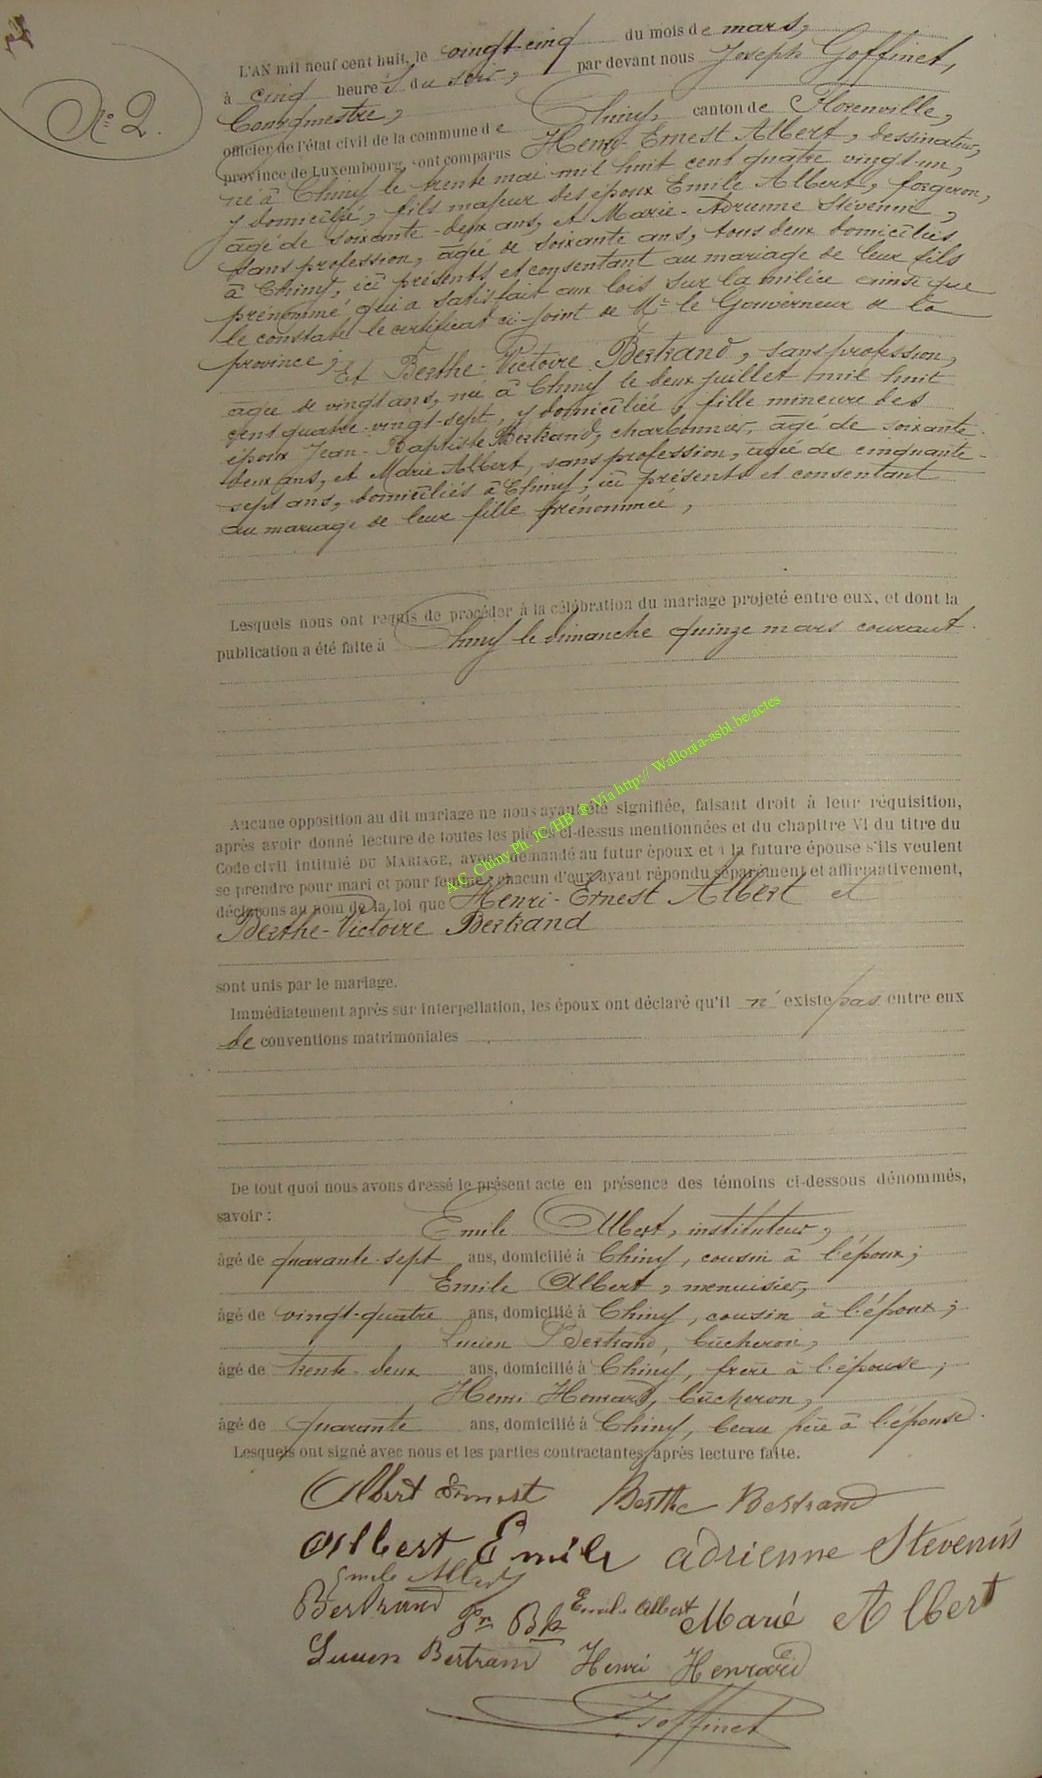 N° 2.
L'AN mil neuf cent huit, le vingt-cinq du mois de mars,
à cinq heures du soir, par devant nous Joseph Goffinet,
Bourgmestre,
officier de l'état civil de la commune de Chiny, canton de Florenville,
province de Luxembourg, ont comparus Henri-Ernest Albert, dessinateur,
né à Chiny le trente mai mil huit cent quatre vingt-un,
y domicilié, fils majeur des époux Emile Albert, forgeron,
âgé de soixante-deux ans, et Marie-Adrienne Stévenin,
sans profession, âgée de soixante ans, tous deux domiciliés
à Chiny, ici présents et consentant au mariage de leur fils
prénommé, qui a satisfait aux lois sur la milice ainsi que
le constate le certificat ci-joint de Mr le Gouverneur de la
province;
Et Berthe-Victoire Bertrand, sans profession,
âgée de vingt ans, née à Chiny le deux juillet mil huit
cent quatre-vingt-sept, y domiciliée, fille mineure des
époux Jean-Baptiste Bertrand, charbonnier, âgé de soixante-
deux ans, et Marie Albert, sans profession, âgée de cinquante-
sept ans, domiciliés à Chiny, ici présents et consentant
au mariage de leur fille prénommée,
Lesquels nous ont requis de procéder à la célébration du mariage projeté entre eux, et dont la
publication a été faite à Chiny le dimanche quinze mars courant.
Aucune opposition au dit mariage ne nous ayant été signifiée, faisant droit à leur réquisition,
après avoir donné lecture de toutes les pièces ci-dessus mentionnées et du chapitre VI du titre du
Code civil intitulé DU MARIAGE, avons demandé au futur époux et à la future épouse s'ils veulent
se prendre pour mari et pour femme; chacun d'eux ayant répondu séparément et affirmativement,
déclarons au nom de la loi que Henri-Ernest Albert et
Berthe-Victoire Bertrand
sont unis par le mariage.
Immédiatement après sur interpellation, les époux ont déclaré qu'il n' existe pas entre eux
de conventions matrimoniales
De tout quoi nous avons dressé le présent acte en présence des témoins ci-dessous dénommés,
savoir :
Emile Albert, instituteur,
âgé de quarante-sept ans, domicilié à Chiny, cousin à l'époux;
Emile Albert, menuisier,
âgé de vingt-quatre ans, domicilié à Chiny, cousin à l'époux;
Lucien Bertrand, bûcheron,
âgé de trente-deux ans, domicilié à Chiny, frère à l'épouse;
Henri Henrard, bûcheron,
âgé de quarante ans, domicilié à Chiny, beau frère à l'épouse.
Lesquels ont signé avec nous et les parties contractantes, après lecture faite.
Albert Ernest Berthe Bertrand
Albert Emile adrienne Stevenin
Emile Albert
Bertrand Jn Bte Emile Albert Marie Albert
Lucien Bertrand Henri Henrard
J Goffinet
A.C. Chiny Ph. JC/HB ® Via http:// Wallonia-asbl.be/actes